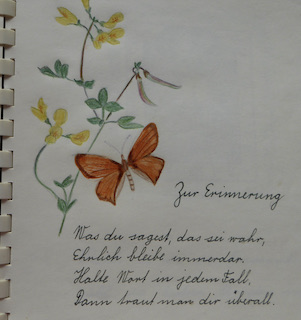 Zur Erinnerung
Was du sagest, das sei wahr,
Ehrlich bleibe immerdar.
Halte Wort in jedem Fall,
Dann traut man dir überall.